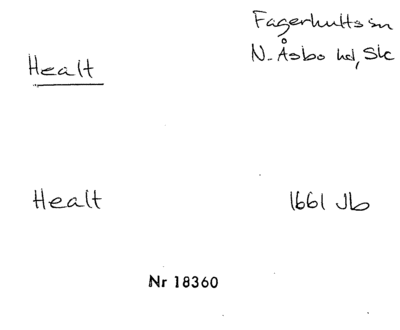 Fagerhults sn
Healt
N. Åsbo hd, Sk
Healt
1661 Jb
Nr 18360